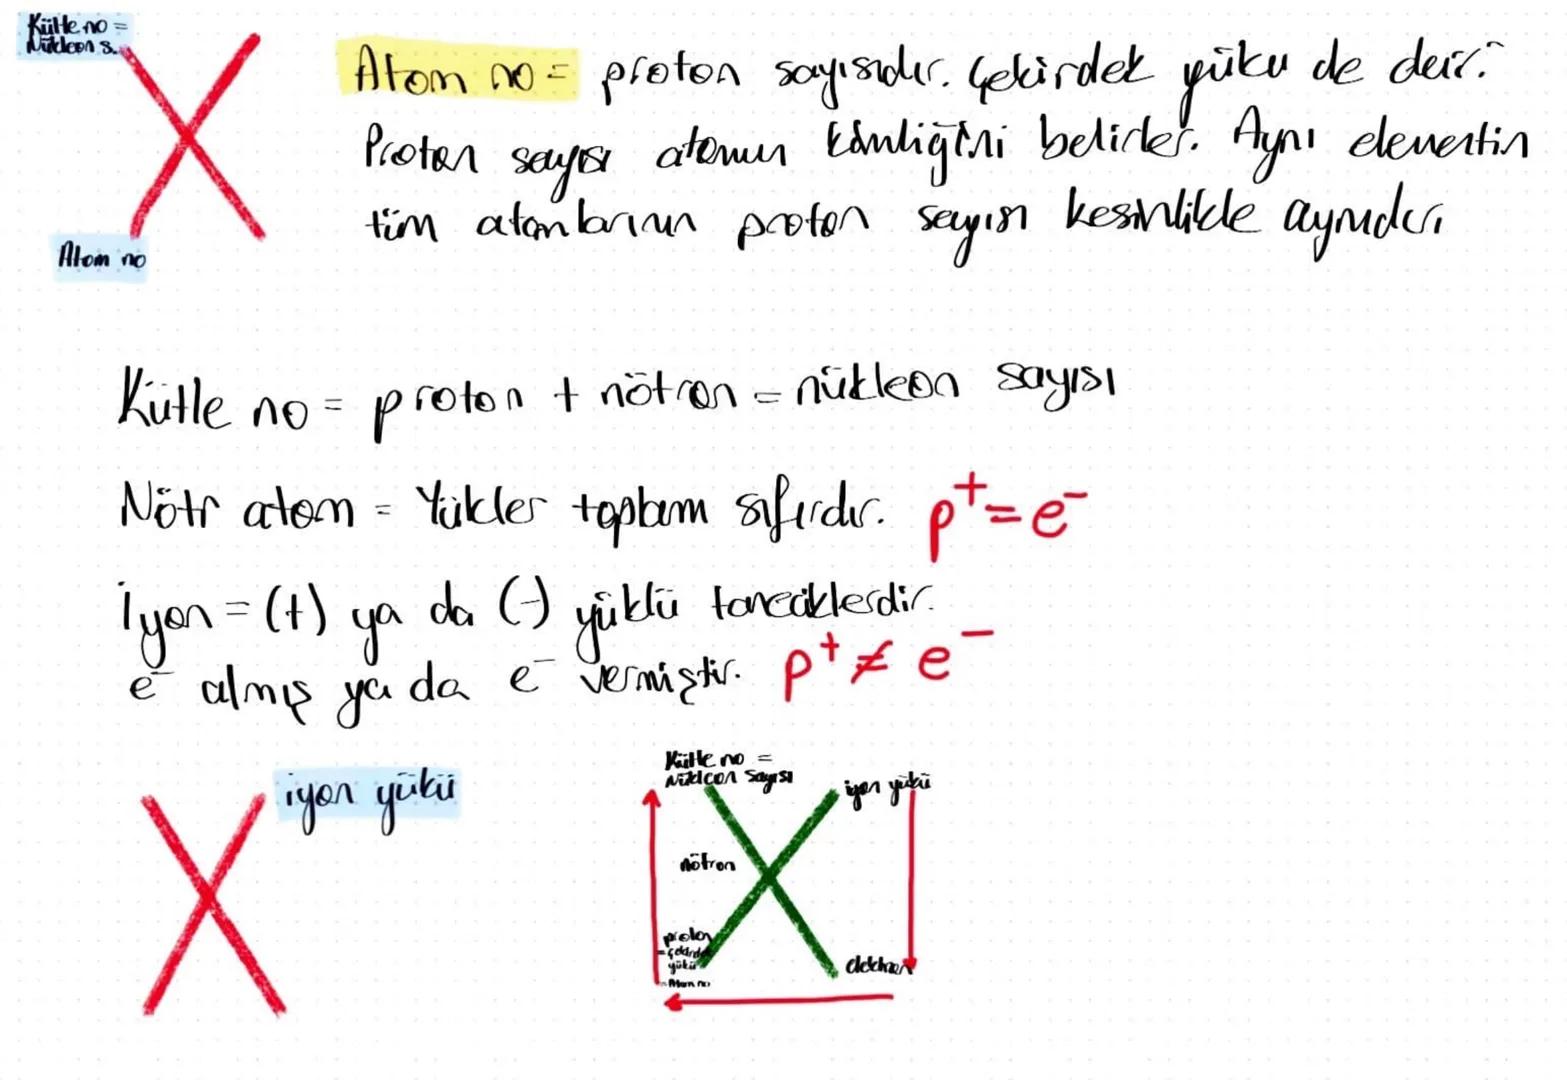 Kütle no =
Nükleon s.
X
Atom no
Atom no = proton sayısıdır. Çekirdek yükü de denir.
Proton sayısı atomun kimliğini belirler. Aynı elementin
tüm atomlarının proton sayısı kesinlikle aynıdır
Kütle no = proton + nötron = nükleon sayısı
Nötr atom = Yükler toplam sıfırdır. p⁺=e⁻
İyon = (+) ya da (-) yüklü taneciklerdir.
e⁻ almış ya da e⁻ vermiştir. p⁺ ≠ e⁻
X iyon yükü
Kütle no =
Nükleon sayısı
iyon yükü
nötron
X
proton
= çekirdek
yükü
= Atom no
elektron